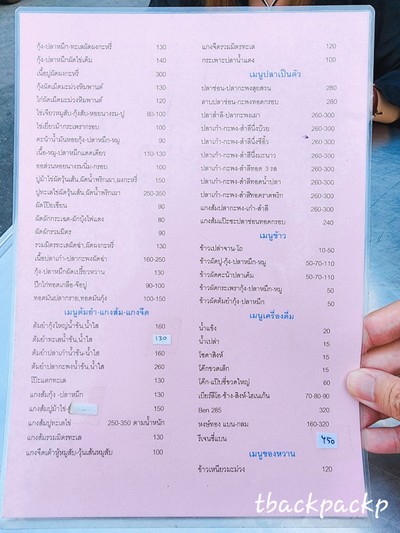 กุ้ง-ปลาหมึก-ทะเลผัดผงกะหรี่ 130
กุ้ง-ปลาหมึกผัดไข่เค็ม 140
เนื้อปูผัดผงกะหรี่ 300
กุ้งผัดเม็ดมะม่วงหิมพานต์ 120
ไก่ผัดเม็ดมะม่วงหิมพานต์ 120
ไข่เจียวหมูสับ-กุ้งสับ-หอยนางรม-ปู 80-100
ไข่เยี่ยวม้ากระเพรากรอบ 100
คะน้าน้ำมันหอยกุ้ง-ปลาหมึก-หมู 90
เนื้อ-หมู-ปลาหมึกแดดเดียว 110-130
ออส่วนหอยนางรมนิ่ม-กรอบ 100
ปูม้าไข่ผัดวุ้นเส้น,ผัดน้ำพริกเผา,ผงกะหรี่ 150
ปูทะเลไข่ผัดวุ้นเส้น,ผัดน้ำพริกเผา 250-350
ผัดโป๊ยเซียน 90
ผัดผักกระเฉด-ผักบุ้งไฟแดง 80
ผัดผักรวมมิตร 90
รวมมิตรทะเลผัดฉ่า,ผัดผงกะหรี่ 130
เนื้อปลาเก๋า-ปลากะพงผัดฉ่า 160-250
กุ้ง-ปลาหมึกผัดเปรี้ยวหวาน 130
ปีกไก่ทอดเกลือ-จ้อปู 90-100
ทอดมันปลากราย,ทอดมันกุ้ง 100-150
เมนูต้มยำ-แกงส้ม-แกงจืด
ต้มยำกุ้งใหญ่น้ำข้น,น้ำใส 160
ต้มยำทะเลน้ำข้น,น้ำใส 130
ต้มยำปลาเก๋าน้ำข้น,น้ำใส 160
ต้มยำปลากะพงน้ำข้น,น้ำใส 260
โป๊ะแตกทะเล 130
แกงส้มกุ้ง -ปลาหมึก 130
แกงส้มปูม้าไข่- 150
แกงส้มปูทะเลไข่ 250-350 ตามน้ำหนัก
แกงส้มรวมมิตรทะเล 130
แกงจืดเต้าหู้หมูสับ-วุ้นเส้นหมูสับ 100
แกงจืดรวมมิตรทะเล 120
กระเพาะปลาน้ำแดง 100
เมนูปลาเป็นตัว
ปลาช่อน-ปลากะพงลุยสวน 280
ลาบปลาช่อน-กะพงทอดกรอบ 280
ปลาสำลี-ปลากะพงเผา 260-300
ปลาเก๋า-กะพง-สำลีนึ่งบ๊วย 260-300
ปลาเก๋า-กะพง-สำลีนึ่งซีอิ๊ว 260-300
ปลาเก๋า-กะพง-สำลีนึ่งมะนาว 260-300
ปลาเก๋า-กะพง-สำลีทอด 3 รส 260-300
ปลาเก๋า-กะพง-สำลีทอดน้ำปลา 260-300
ปลาเก๋า-กะพง-สำลีทอดราดพริก 260-300
แกงส้มปลากะพง-เก๋า-สำลี 260-300
แกงส้มแป๊ะซะปลาช่อนทอดกรอบ 240
เมนูข้าว
ข้าวเปล่าจาน-โถ 10-50
ข้าวผัดปู-กุ้ง-ปลาหมึก-หมู 50-70-110
ข้าวผัดคะน้าปลาเค็ม 50-70-110
ข้าวผัดกระเพรากุ้ง-ปลาหมึก-หมู 50
ข้าวผัดต้มยำกุ้ง-ปลาหมึก 50
เมนูเครื่องดื่ม
น้ำแข็ง 20
น้ำเปล่า 15
โซดาสิงห์ 15
โค้กขวดเล็ก 15
โค้ก-แป๊ปซี่ขวดใหญ่ 60
เบียร์ลีโอ-ช้าง-สิงห์-ไฮเนเก้น 70-80-90
Ben 285 320
หงษ์ทอง แบน-กลม 160-320
รีเจนซี่แบน 450
เมนูของหวาน
ข้าวเหนียวมะม่วง 120
tbackpackp